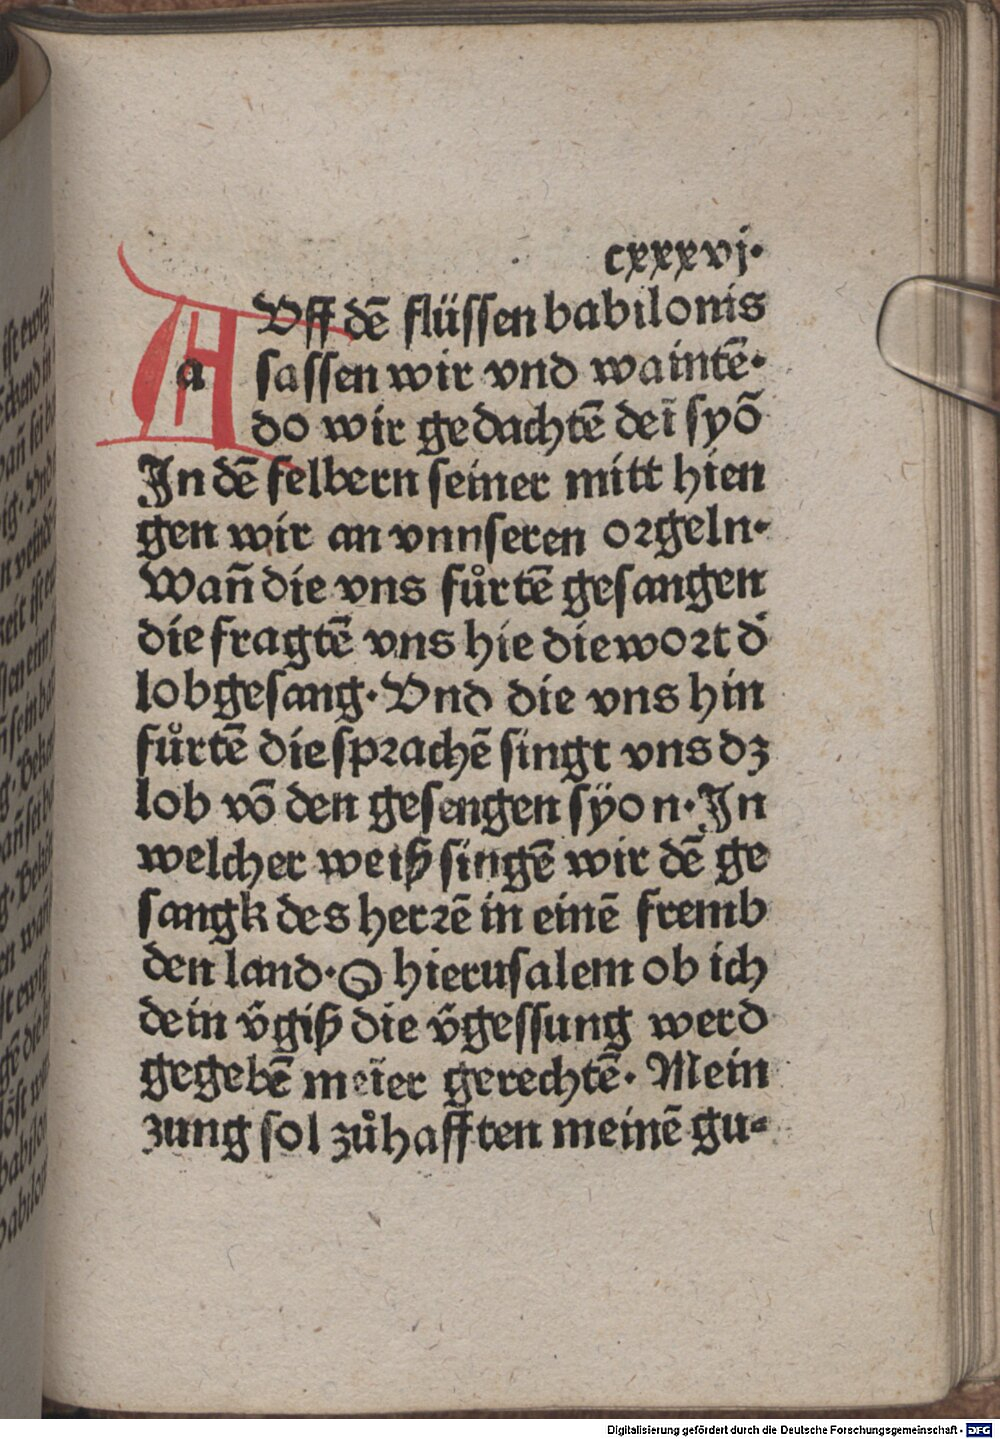 cxxxvj·
AUff dē flüssen babilonis
sassen wir vnd waintē·
do wir gedachtē deī syō
In dē felbern seiner mitt hien
gen wir an vnnseren orgeln·
Wañ die vns fůrtē gesangen
die fragtē vns hie die wort d̕
lobgesang· Vnd die vns hin
fůrtē die sprachē singt vns dz
lob vō den gesengen syon· In
welcher weiß singē wir dē ge
sangk des herrē in einē fremb
den land· O hierusalem ob ich
dein v̄giß die v̄gessung werd
gegebē meīer gerechtē· Mein
zung sol zůhafften meinē gu-
Digitalisierung gefördert durch die Deutsche Forschungsgemeinschaft - DFG